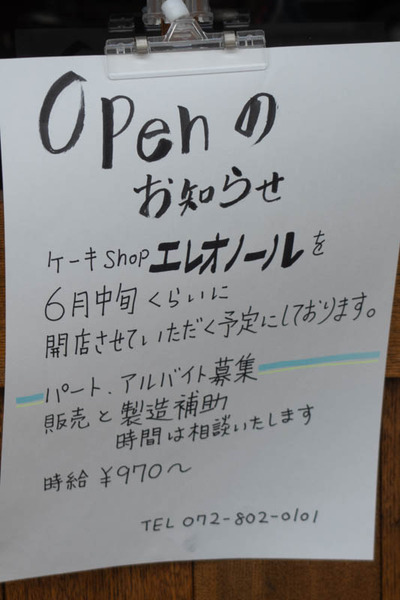 Openの
お知らせ
ケーキshopエレオノールを
6月中旬くらいに
開店させていただく予定にしております。
パート、アルバイト募集
販売と製造補助
時間は相談いたします
時給 ¥970〜
TEL 072-802-0101